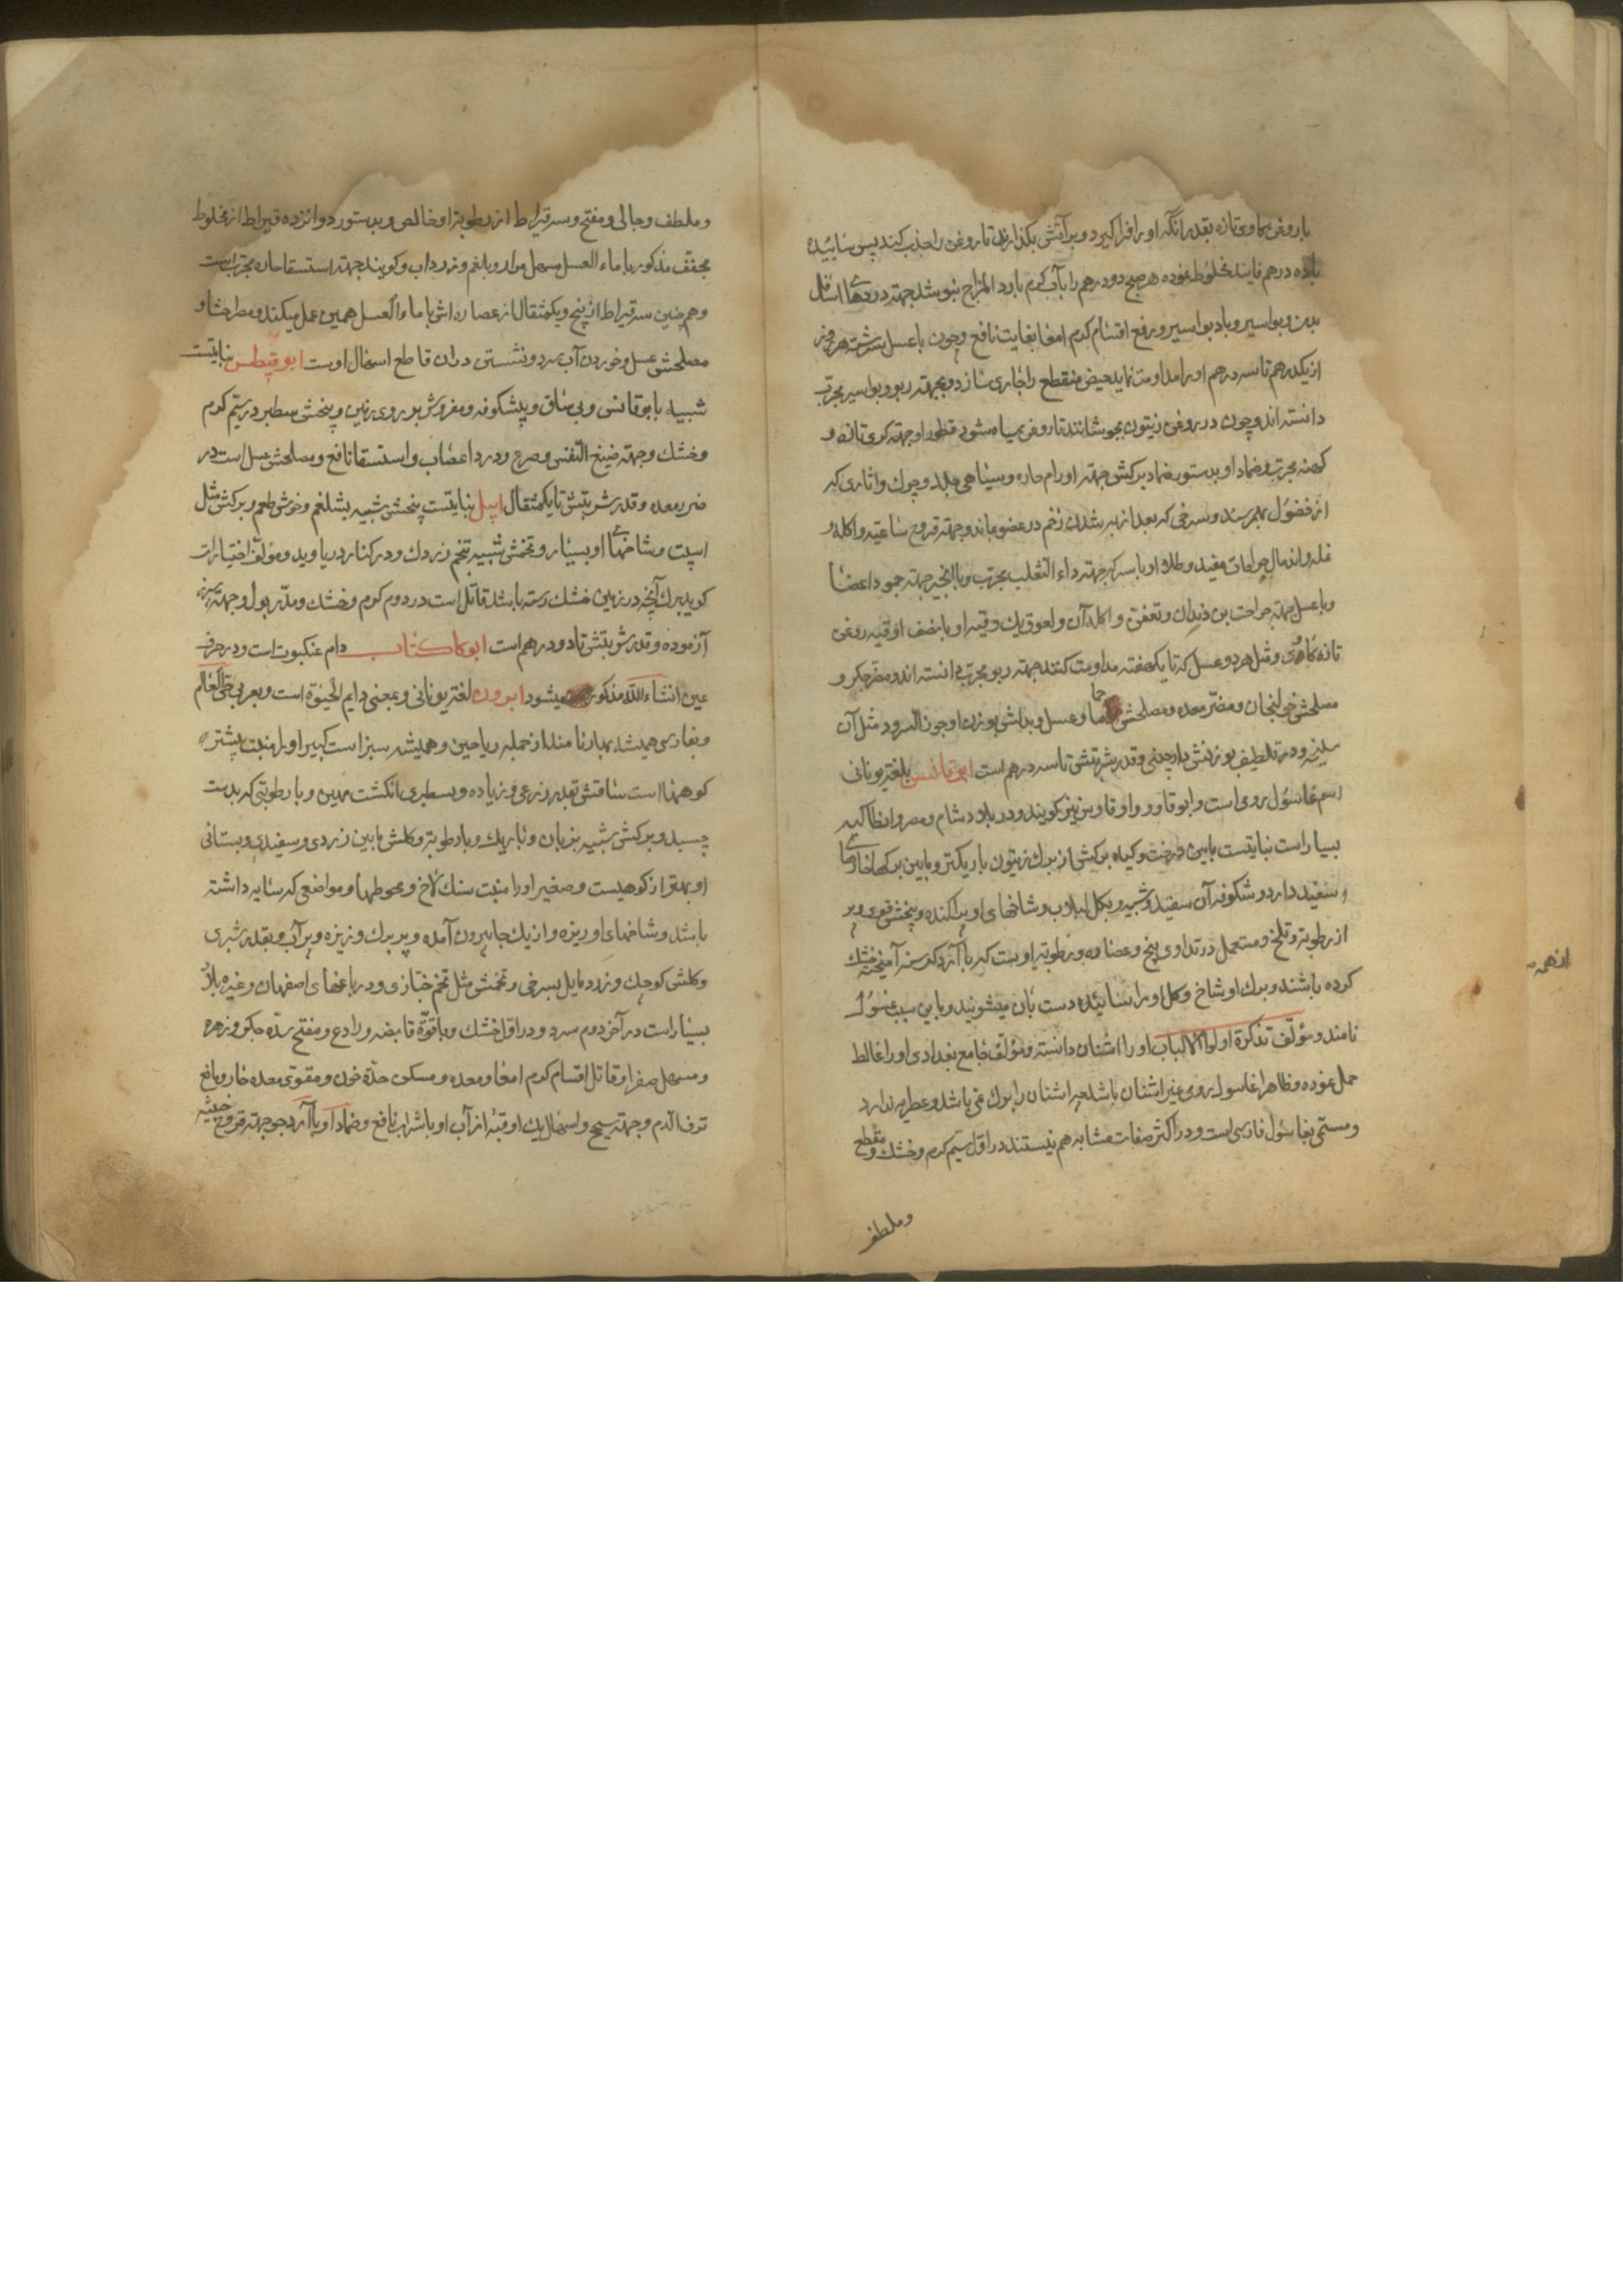 با روغن کاوی تازه بقدر آنکه او را فرا کیرد و بر آتش بکذارند تا روغن را جذب کند پس سائیده
با ده درهم فانید مخلوط نموده هر صبح دو درهم را بآب کرم بارد المزاج بنوشد جهته دردهای اسافل
بدن و بواسیر و باد بواسیر و رفع اقسام کرم امعا بغایت نافع و چون با عسل سرشته هر روز
از یکدرهم تا سه درهم او را مداومت نماید حیض منقطع را جاری سازد و بجهته ربو و بواسیر مجرب
دانسته اند و چون در روغن زیتون بجوشانند تا روغن سیاه شود قطور او جهته کری تازه و
کهنه مجرب و ضماد او و بدستور ضماد برکش جهته اورام حاره و سیاهی جلد و چرك و اثاری که
از فضول بهم رسد و سرخی که بعد از به شدن زخم در عضو بماند و جهته قروح ساعیه و اکله و
نمله و اندمال جراحات مفید و طلاء او با سرکه جهته داء الثعلب مجرب و با انجیر جهته جمود اعضا
و با عسل جهته جراحت بن دندان و تعفن و اکله آن و لعوق یك وقیه او با نصف اوقیه روغن
تازه کاوی و مثل هر دو عسل که تا یکهفته مداومت کنند جهته ربو مجرب دانسته اند و مضر جکر و
مصلحش خولنجان و مضر معده و مصلحش حماما و عسل و بدلش بوزن او جوز السرو و مثل آن
سلیخه و در تلطیف بوزنش دارچینی و قدر شربتش تا سه درهم است ابوقانس بلغة یونانی
اسم غاسول رومی است و ابوقاوو و اوقاوین نیز کویند و در بلاد شام و مصر و انطاکیه
بسیار است نباتیست مابین درخت و کیاه برکش از برك زیتون باریکتر و مابین برکها خارهای
سفید دارد و شکوفه آن سفید و شبیه بکل لبلاب و شاخهای او پراکنده و بیخش قوی و پر
از رطوبة و تلخ و مستعمل در تداوی بیخ و عصاره و رطوبة اوست که با آرد کرسنه آمیخته خشك
کرده باشند و برك او شاخ و کل او را سائیده دست بآن میشویند و باین سبب غسول
نامند و مؤلف تذکرة اولوا الالباب او را اشنان دانسته و مؤلف جامع بغدادی او را غالط
حمل نموده و ظاهرا غاسول رومی غیر اشنان باشد چه اشنان را برك نمی باشد و عطریه ندارد
و مستمی بغاسول فارسی است و در اکثر صفات مشابه هم نیستند در اول سیم کرم و خشك و مقطع
و ملطف
از همه
و ملطف و جالی و مفتح و سه قیراط از رطوبة او خالص و بدستور دوانزده قیراط از مخلوط
مجفف مذکور با ماء العسل مسهل مرار و بلغم و زرداب و کویند جهته استسقا حاره مجرب است
و همچنین سه قیراط از بیخ و یکمثقال از عصاره اش با ماء العسل همین عمل میکند و مضر احشا و
مصلحش عسل و خوردن آب سرد و نشستن در آن قاطع اسهال اوست ابوقیطس نباتیست
شبیه بابوقانس و بی ساق و بیشکوفه و مفروش بر روی زمین و بیخش سطبر در سیم کرم
و خشك و جهته ضیق النفس و صرع و درد اعصاب و استسقا نافع و مصلحش عسل است در
ضرر معده و قدر شربتش تا یکمثقال ابیل نباتیست بیخش شبیه بشلغم و خوش طعم و برکش مثل
اسپست و شاخهای او بسیار و تخمش شبیه بتخم زردك و در کنار دریا روید و مؤلف اختیارات
کوید برك آنچه در زمین خشك رسته باشد قاتل است در دوم کرم و خشك و مدر بول و جهته سپرز
آزموده و قدر شربتش تا دو درهم است ابوکاکتاب دام عنکبوت است و در حرف
عین انشاء الله مذکور میشود ابرون لغة یونانی و بمعنی دایم الحیوة است و بعربی حی العالم
و بفارسی همیشه بهار نامند از جمله ریاحین و همیشه سبز است کبیر او را منبت بیشتر
کوههاست ساقش بقدر ذرعی و زیاده و بسطبری انکشت مهین و با رطوبتی که بدست
چسبد و برکش شبیه بزبان و باریك و با رطوبة و کلش مابین زردی و سفیدی و بستانی
او بهتر از کوهیست و صغیر او را منبت سنك لاخ و محوطها و مواضعی که سایه داشته
باشد و شاخهای او ریزه و از یك جا بیرون آمده و پر برك و ریزه و پر آب و بقدر شبری
و کلش کوچك و زرد مایل بسرخی و تخمش مثل تخم خبازی و در باغهای اصفهان و غیره بلاد
بسیار است در آخر دوم سرد و در اول خشك و با قوة قابضه و رادع و مفتح سدّه جکر و زهره
و مسهل صفرا و قاتل اقسام کرم امعا و معده و مسکن حدّة خون و مقوی معده حار و مانع
نزف الدم و جهته سحج و اسهال یك اوقیه از آب او با شراب نافع و ضماد او با آرد جو جهته قروح خبیثه